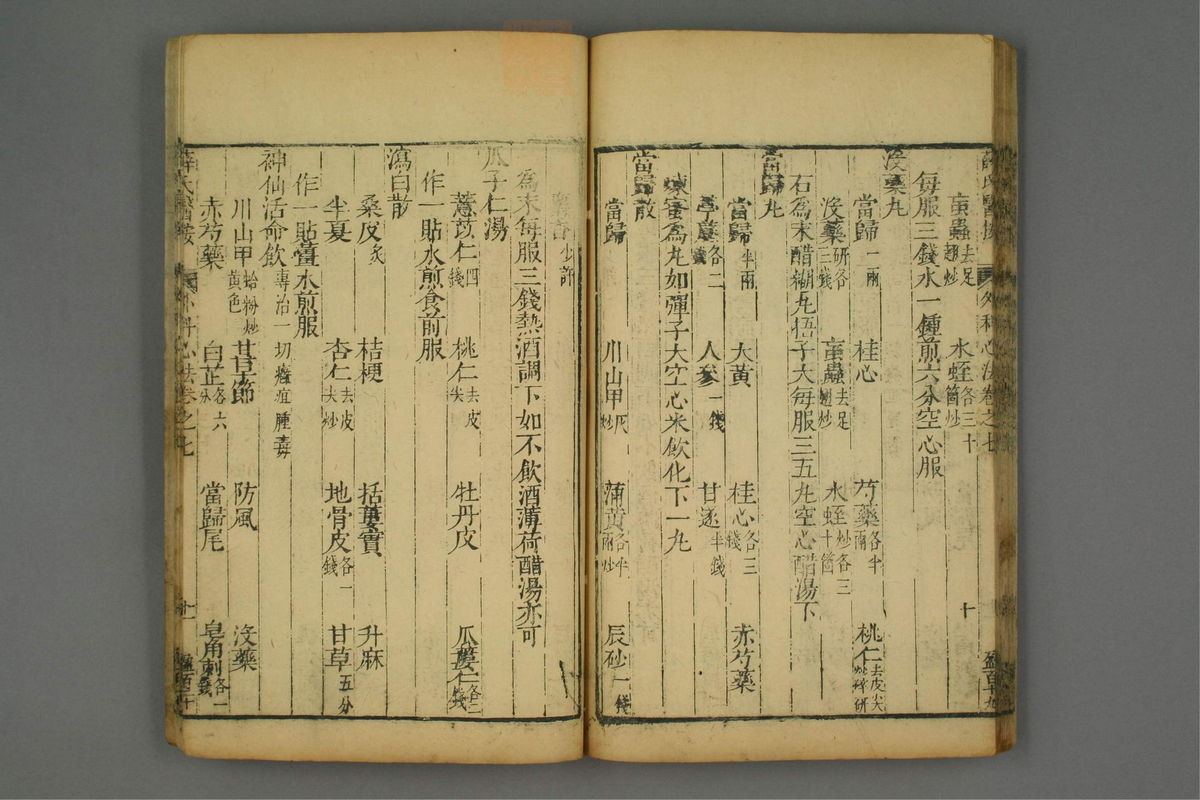 薛氏醫按 外科心法卷之七 十
䖟蟲去足翅炒 水蛭各三十箇炒
每服三錢水一鍾煎六分空心服
沒藥丸
當歸一兩 桂心 芍藥各半兩 桃仁去皮尖炒研
沒藥研各三錢 䖟蟲去足翅炒 水蛭炒各三十箇
右為末醋糊丸梧子大每服三五丸空心醋湯下
當歸丸
當歸半兩 大黃 桂心各三錢 赤芍藥
葶藶各二錢 人參一錢 甘遂半錢
煉蜜為丸如彈子大空心米飲化下一丸
當歸散
當歸 川山甲灰炒 蒲黃各半兩炒 辰砂一錢
麝香少許
為末每服三錢熱酒調下如不飲酒薄荷醋湯亦可
瓜子仁湯
薏苡仁四錢 桃仁去皮尖 牡丹皮 瓜蔞仁各二錢
作一貼水煎食前服
瀉白散
桑皮炙 桔梗 括蔞實 升麻
半夏 杏仁去皮尖炒 地骨皮各一錢 甘草五分
作一貼薑水煎服
神仙活命飲專治一切瘡疽腫毒
川山甲蛤粉炒黃色 甘草節 防風 沒藥
赤芍藥 白芷各六分 當歸尾 皂角刺各一錢
薛氏醫按 外科心法卷之七 十一